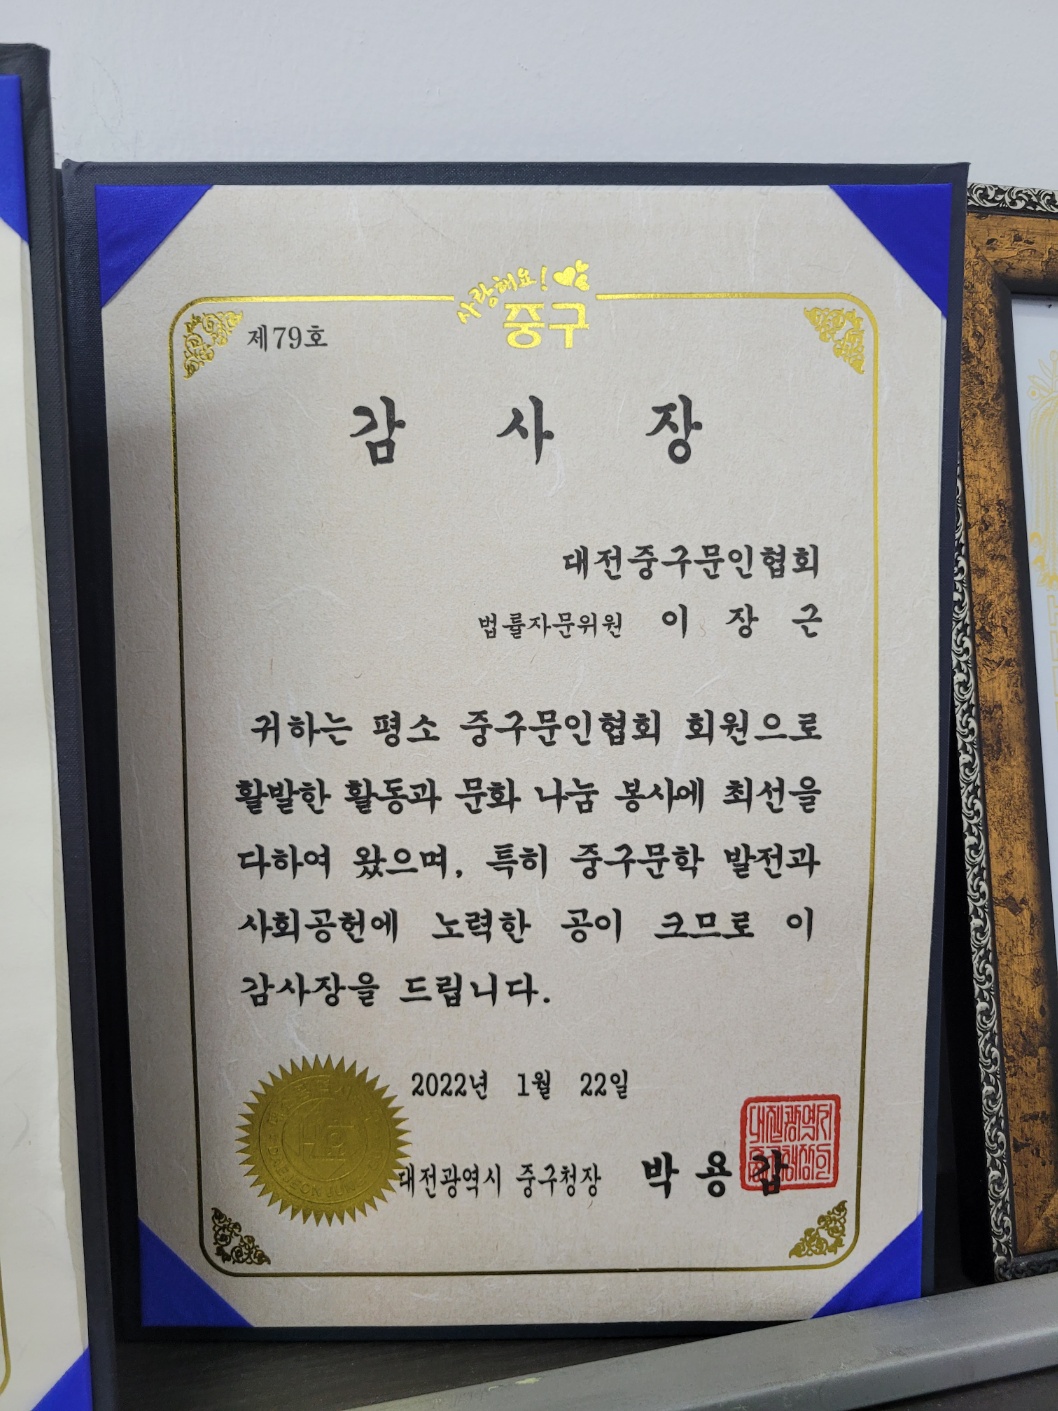 사랑해요!
중구
제79호
감 사 장
대전중구문인협회
법률자문위원 이 장 근
귀하는 평소 중구문인협회 회원으로
활발한 활동과 문화 나눔 봉사에 최선을
다하여 왔으며, 특히 중구문학 발전과
사회공헌에 노력한 공이 크므로 이
감사장을 드립니다.
2022년 1월 22일
대전광역시 중구청장 박 용 갑
대전광역시
중구청장인